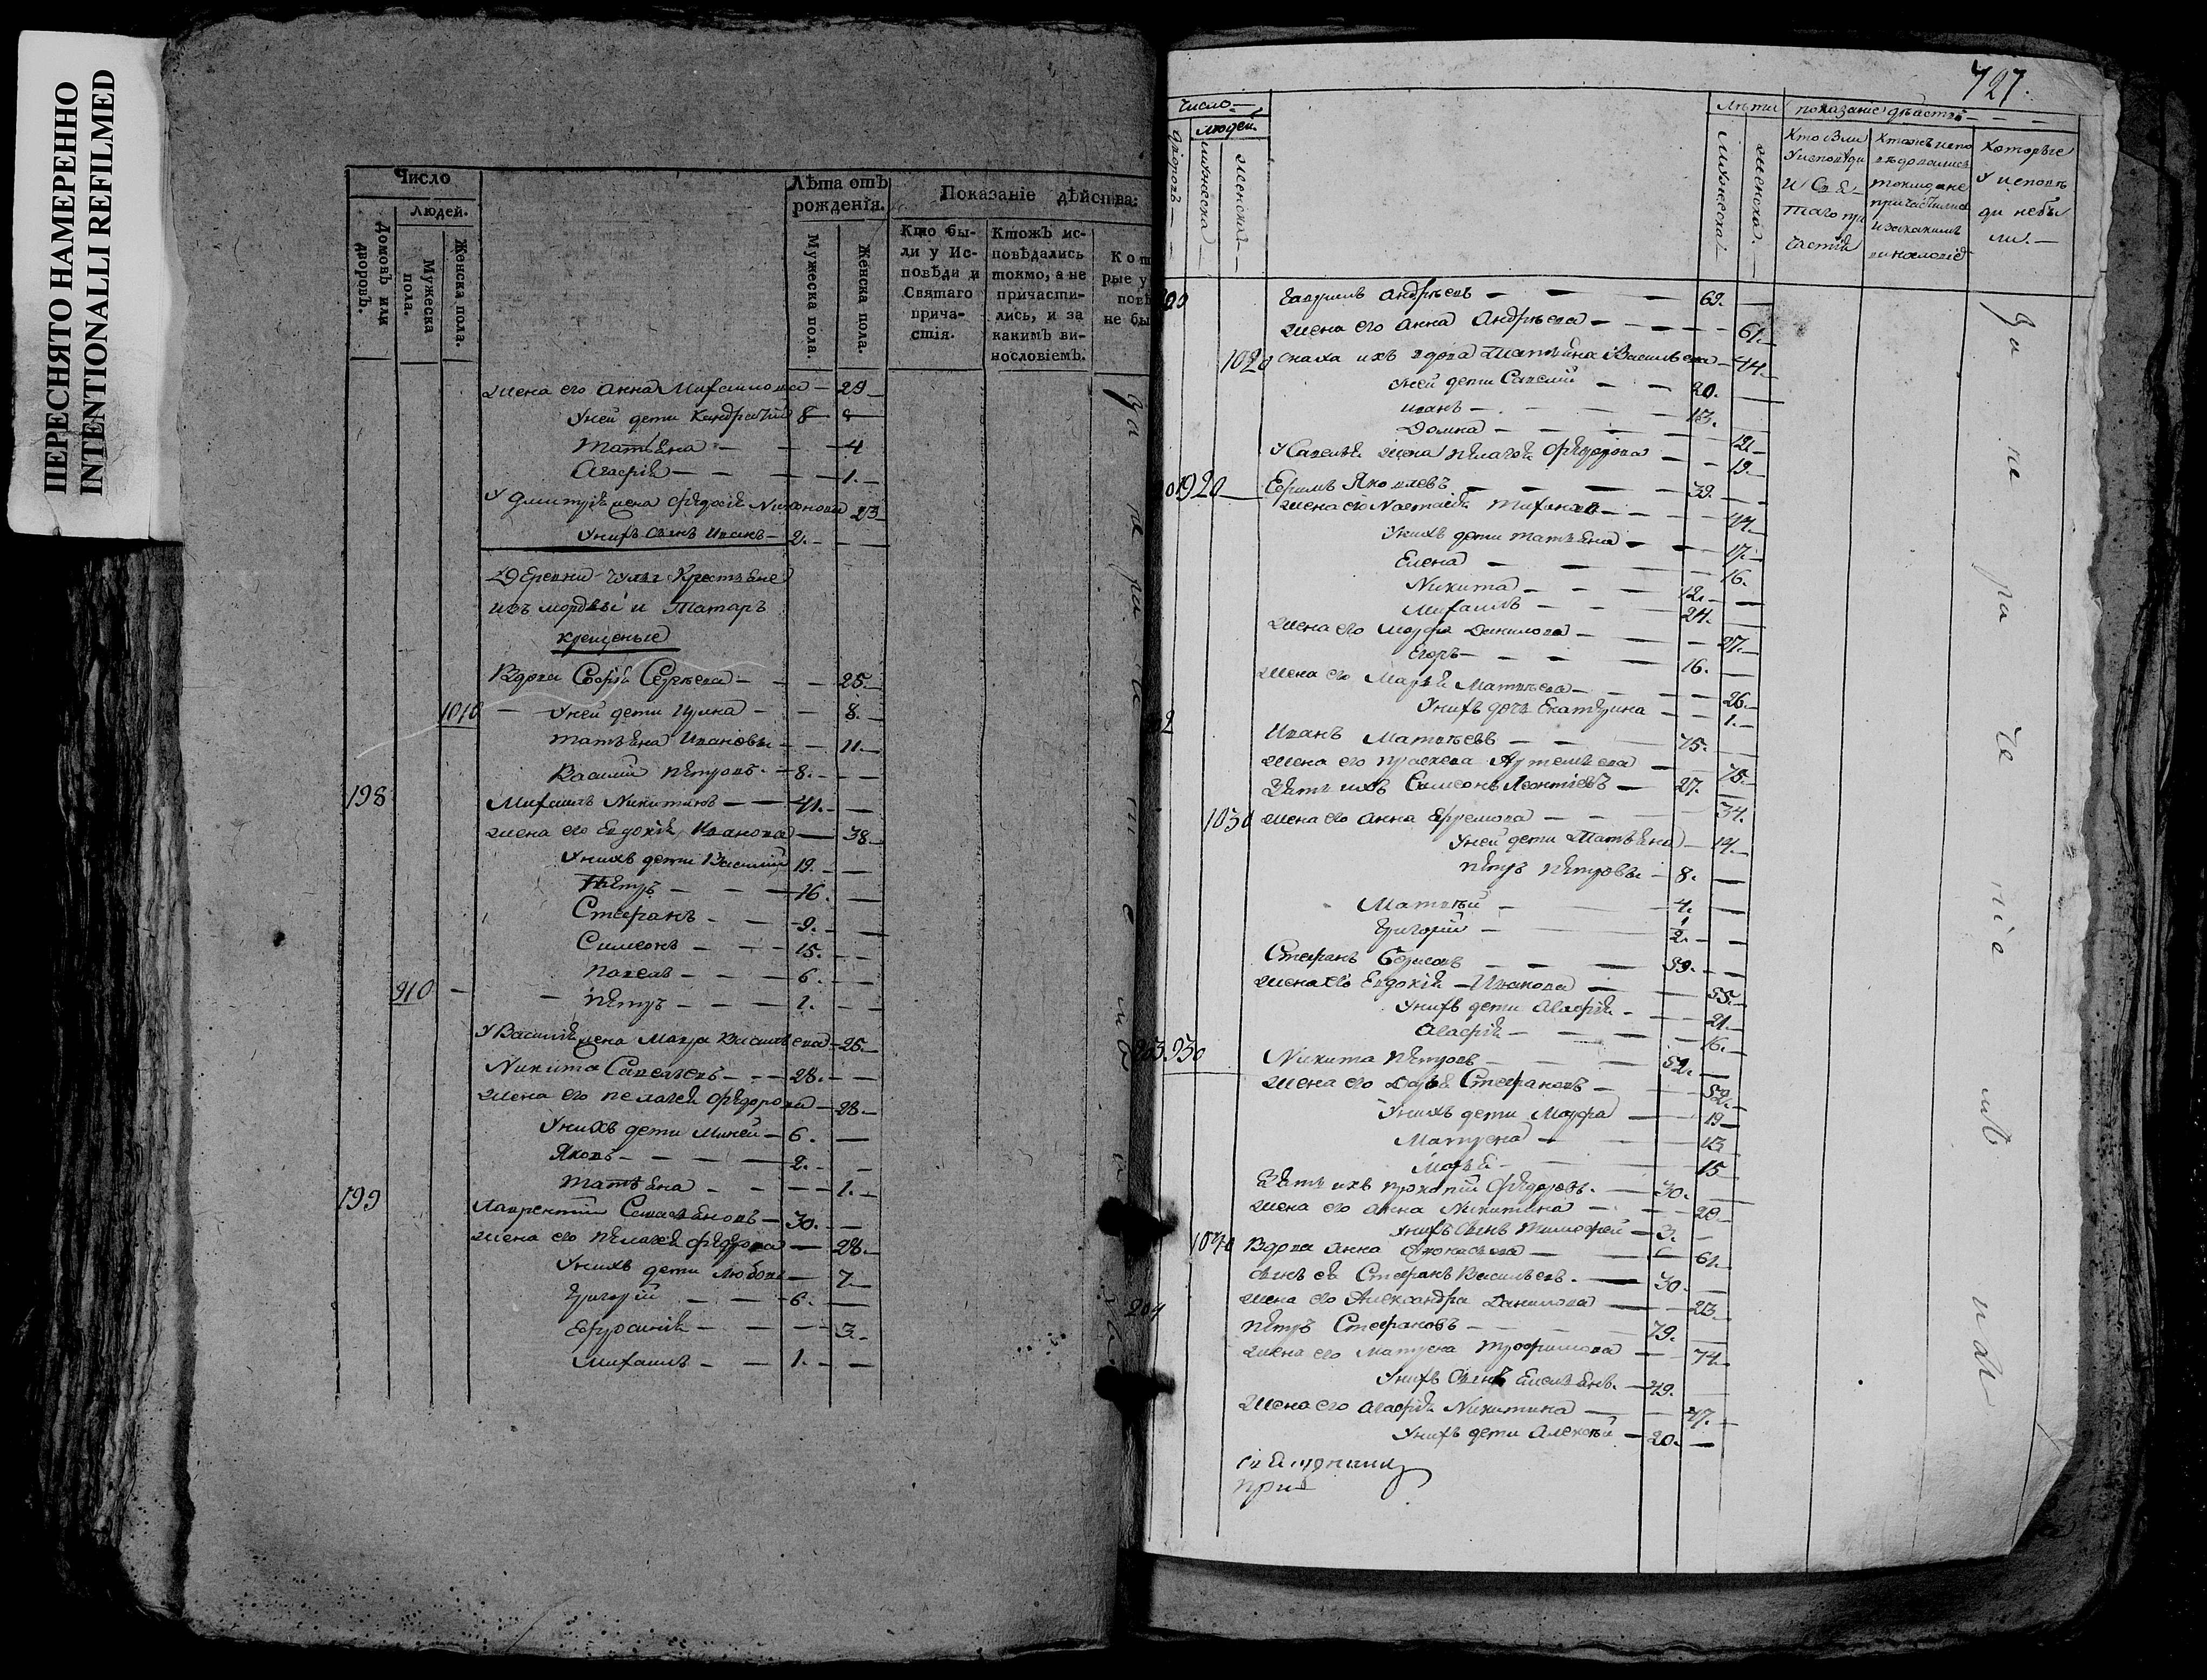 ПЕРЕСНЯТО НАМЕРЕННО
INTENTIONALLI REFILMED
Число
Людей.
Домовъ или дворовъ.
Мужеска пола.
Женска пола.
Лѣта отъ рожденія.
Мужеска пола.
Женска пола.
Показаніе дѣйства:
Кто бы-
ли у Ис-
повѣди и
Святаго
прича-
стія.
Ктожъ ис-
повѣдались
токмо, а не
причасти-
лись, и за
какимъ ви-
нословіемъ.
Кот
рые у
повѣ
не бы
жена его Анна Михаилова — 29
У ней дети Кандратий 8
Татьяна — 4
Агафія — 1.
У Дмитрія жена Федосія Никонова 23
У нихъ сынъ Иванъ — 2.
Деревни Крестьяне
изъ мордвы и Татаръ
крещеные
Вдова Софія Сергѣева — 25.
1010 — У ней дети — 8.
Татьяна Ивановы — 11.
Василий Петровъ — 8.
198 Михаилъ Никитинъ — 41.
жена его Евдокія Иванова — 38
У нихъ дети Василий 19.
Петръ — 16.
Стефанъ — 9.
Симеонъ — 15.
Павелъ — 6.
910 — Петръ — 1.
У Василія жена Марја Васильева — 25.
Никита Савельевъ — 28.
жена его Пелагея Федорова — 28.
У нихъ дети Миней — 6.
Яковъ — 2.
Татьяна — 1.
199 Лаврентий — 30.
жена его Пелагея Федорова — 28.
У нихъ дети Любовь — 7.
Григорій — 6.
Ефросинія — 3.
Михаилъ — 1.
727.
Число
людей.
дворовъ
мужеска
женска
Лѣта
мужеска
женска
показаніе дѣйства
Кто были
У исповѣди
и Свя
таго при
частія
Ктожъ испо
вѣдовались
токмо а не
причастились
и за какимъ
винословіе
Которые
У исповѣ
ди не бы
ли.
Гаврилъ Андрѣевъ — 69.
жена его Анна Андрѣева — 61.
1020 сноха ихъ вдова Татьяна Васильева — 44.
у ней дети Савелий — 20.
Иванъ — 13.
Домна — 12.
У Савелья жена Пелагея Федорова — 19.
920 Ефимъ Яковлевъ — 39.
жена его Настасія — 44.
У нихъ дети Татьяна — 17.
Елена — 16.
Никита — 12.
Михаилъ — 24.
жена его Марфа Данилова — 27.
Егоръ — 16.
жена его Марья Матвѣева — 26.
У нихъ дочь Екатерина — 1.
Иванъ Матвѣевъ — 75.
жена его Прасковья Артемьева — 75.
Зять ихъ Симеонъ Леонтіевъ — 27.
1030 жена его Анна Ефремова — 34.
У ней дети Татьяна — 14.
Петръ Петровы — 8.
Матвѣй — 4.
Григорій — 1/2.
Стефанъ Борисовъ — 59.
жена его Евдокія Иванова — 55.
У нихъ дети Агафія — 21.
Агафія — 16.
203. 930 Никита Петровъ — 52.
жена его Дарья Стефанова — 52.
У нихъ дети Марфа — 19
Матрена — 13
Марья — 15
Зять ихъ Прокопій Федоровъ — 30.
жена его Анна Никитина — 20.
У нихъ сынъ Тимофей — 3.
1040 Вдова Анна — 61.
сынъ ея Стефанъ Васильевъ — 30.
жена его Александра Данилова — 23.
204 Петръ Стефановъ — 79.
жена его Матрена Трофимова — 74.
У нихъ сынъ Емельянъ — 49.
жена его Агафія Никитина — 47.
У нихъ дети Алексѣй — 20.